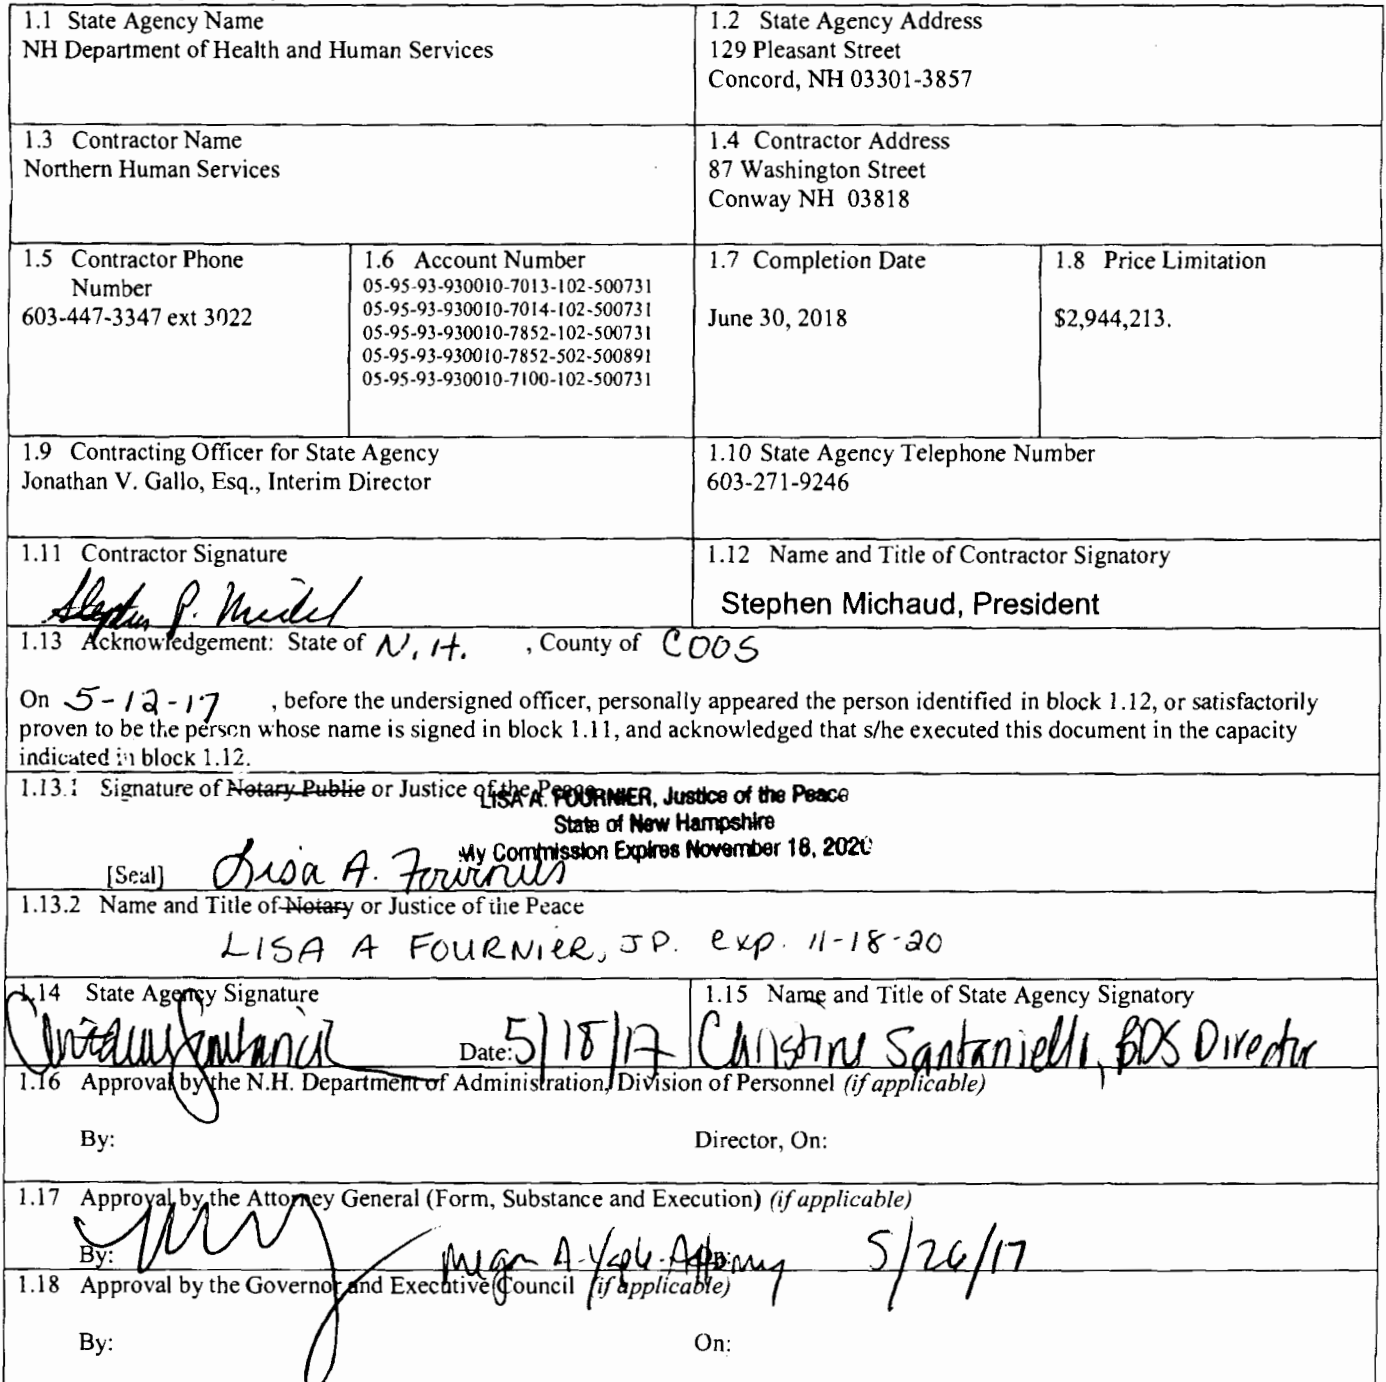 1.1 State Agency Name
NH Department of Health and Human Services
1.2 State Agency Address
129 Pleasant Street
Concord, NH 03301-3857
1.3 Contractor Name
Northern Human Services
1.4 Contractor Address
87 Washington Street
Conway NH 03818
1.5 Contractor Phone
Number
603-447-3347 ext 3022
1.6 Account Number
05-95-93-930010-7013-102-500731
05-95-93-930010-7014-102-500731
05-95-93-930010-7852-102-500731
05-95-93-930010-7852-502-500891
05-95-93-930010-7100-102-500731
1.7 Completion Date
June 30, 2018
1.8 Price Limitation
$2,944,213.
1.9 Contracting Officer for State Agency
Jonathan V. Gallo, Esq., Interim Director
1.10 State Agency Telephone Number
603-271-9246
1.11 Contractor Signature
Stephen P.
1.12 Name and Title of Contractor Signatory
Stephen Michaud, President
1.13 Acknowledgement: State of N.H. , County of COOS
On 5-12-17 , before the undersigned officer, personally appeared the person identified in block 1.12, or satisfactorily
proven to be the person whose name is signed in block 1.11, and acknowledged that s/he executed this document in the capacity
indicated in block 1.12.
1.13.1 Signature of Notary Public or Justice of the Peace
LISA A. FOURNIER, Justice of the Peace
State of New Hampshire
My Commission Expires November 18, 2020
[Seal] Lisa A. Fournier
1.13.2 Name and Title of Notary or Justice of the Peace
LISA A FOURNIER, JP. exp. 11-18-20
1.14 State Agency Signature
Date: 5/18/17
1.15 Name and Title of State Agency Signatory
Christine Santaniello, BDS Director
1.16 Approval by the N.H. Department of Administration, Division of Personnel (if applicable)
By: Director, On:
1.17 Approval by the Attorney General (Form, Substance and Execution) (if applicable)
By: Megan A. Yaple-Attorney On: 5/26/17
1.18 Approval by the Governor and Executive Council (if applicable)
By: On: